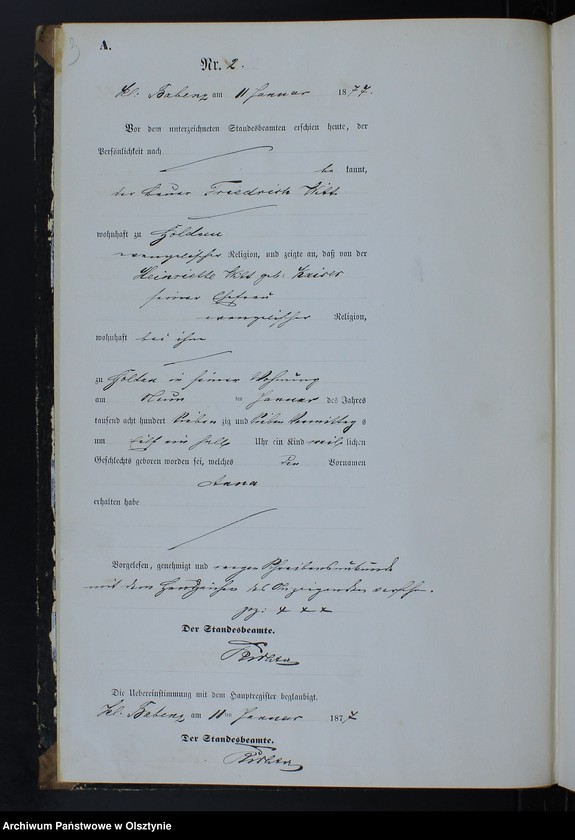 3
A.
Nr. 2.
Kl. Babenz am 11 Januar 1877.
Vor dem unterzeichneten Standesbeamten erschien heute, der
Persönlichkeit nach
be kannt,
der Bauer Friedrich Witt
wohnhaft zu Goldau
evangelischer Religion, und zeigte an, daß von der
Heinriette Witt geb: Kaiser
seiner Ehefrau
evangelischer Religion,
wohnhaft bei ihm
zu in seiner Wohnung
am Neun ten Januar des Jahres
tausend acht hundert sieben zig und sieben Vormittag s
um Eilf ein halb Uhr ein Kind weib lichen
Geschlechts geboren worden sei, welches den Vornamen
Anna
erhalten habe
Vorgelesen, genehmigt und wegen Schreibensunkunde
mit dem Handzeichen des Anzeigenden versehen.
gez: + + +
Der Standesbeamte.
Die Uebereinstimmung mit dem Hauptregister beglaubigt.
Kl: Babenz am 11ten Januar 1877
Der Standesbeamte.
Archiwum Państwowe w Olsztynie